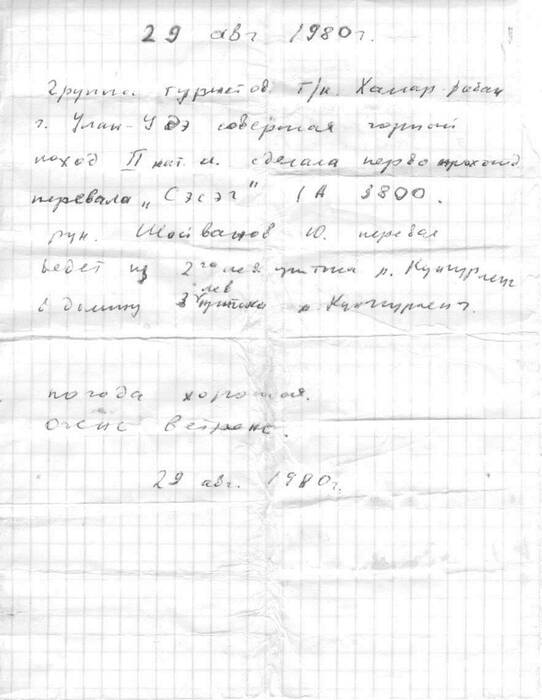 29 авг 1980г.
Группа туристов т/к. Хамар-Дабан
г. Улан-Удэ совершая горный
поход II кат. сл. сделала перво проход
перевала "Сэсэг" 1А 3800.
рук. Шойванов Ю. перевал
ведет из 2го лев притока р.
в долину 3 лев притока р.
погода хорошая.
очень ветрено.
29 авг. 1980г.